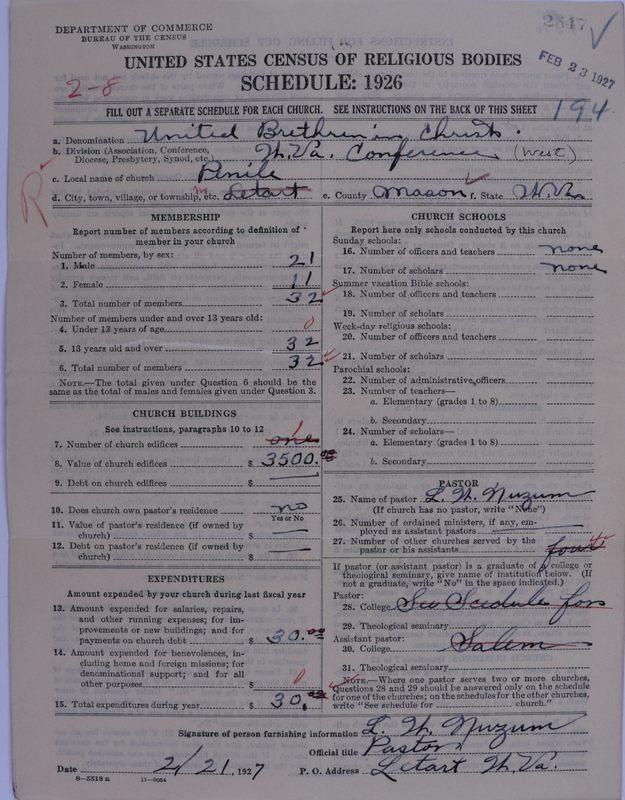 2647
DEPARTMENT OF COMMERCE
BUREAU OF THE CENSUS
WASHINGTON
FEB 23 1927
UNITED STATES CENSUS OF RELIGIOUS BODIES
SCHEDULE: 1926
2-8
194
FILL OUT A SEPARATE SCHEDULE FOR EACH CHURCH. SEE INSTRUCTIONS ON THE BACK OF THIS SHEET
a. Denomination United Brethren in Christ.
b. Division (Association, Conference, Diocese, Presbytery, Synod, etc.) W. Va. Conference (West)
R
c. Local name of church Penile
d. City, town, village, or township, etc. Letart e. County Mason f. State W. Va.
MEMBERSHIP
Report number of members according to definition of member in your church
Number of members, by sex:
1. Male 21
2. Female 11
3. Total number of members 32
Number of members under and over 13 years old:
4. Under 13 years of age 0
5. 13 years old and over 32
6. Total number of members 32
NOTE.—The total given under Question 6 should be the
same as the total of males and females given under Question 3.
CHURCH BUILDINGS
See instructions, paragraphs 10 to 12
7. Number of church edifices one
8. Value of church edifices $ 3500.00
9. Debt on church edifices $
10. Does church own pastor's residence no
Yes or No
11. Value of pastor's residence (if owned by
church) $
12. Debt on pastor's residence (if owned by
church) $
EXPENDITURES
Amount expended by your church during last fiscal year
13. Amount expended for salaries, repairs,
and other running expenses; for im-
provements or new buildings; and for
payments on church debt $ 30.00
14. Amount expended for benevolences, in-
cluding home and foreign missions; for
denominational support; and for all
other purposes $ 0
15. Total expenditures during year $ 30.00
CHURCH SCHOOLS
Report here only schools conducted by this church
Sunday schools:
16. Number of officers and teachers none
17. Number of scholars none
Summer vacation Bible schools:
18. Number of officers and teachers
19. Number of scholars
Week-day religious schools:
20. Number of officers and teachers
21. Number of scholars
Parochial schools:
22. Number of administrative officers
23. Number of teachers—
a. Elementary (grades 1 to 8)
b. Secondary
24. Number of scholars—
a. Elementary (grades 1 to 8)
b. Secondary
PASTOR
25. Name of pastor L. W. Nuzum
(If church has no pastor, write "None")
26. Number of ordained ministers, if any, em-
ployed as assistant pastors
27. Number of other churches served by the
pastor or his assistants four 4
If pastor (or assistant pastor) is a graduate of a college or
theological seminary, give name of institution below. (If
not a graduate, write "No" in the space indicated.)
Pastor:
28. College See Scedule for
29. Theological seminary
Assistant pastor:
30. College Salem
31. Theological seminary
NOTE.—Where one pastor serves two or more churches,
Questions 28 and 29 should be answered only on the schedule
for one of the churches; on the schedules for the other churches,
write "See schedule for church."
Signature of person furnishing information L. W. Nuzum
Official title Pastor
Date 2/21, 1927 P. O. Address Letart W. Va.
8—5518 a 11—9084